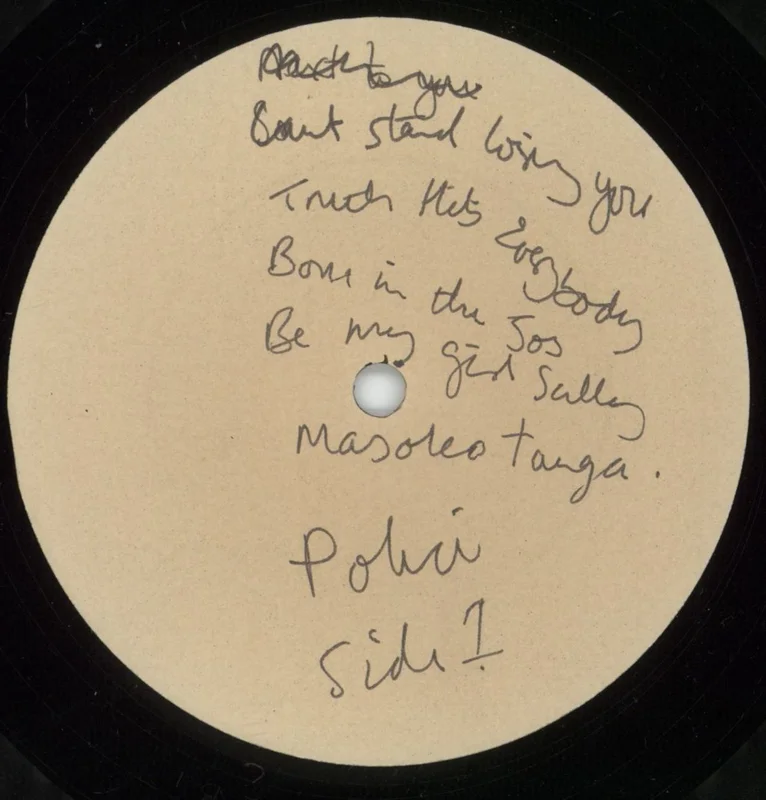 Next to you
Can't stand losing you
Truth Hits Everybody
Born in the 50s
Be my girl Sally
Masoko tanga.
Police
Side 1